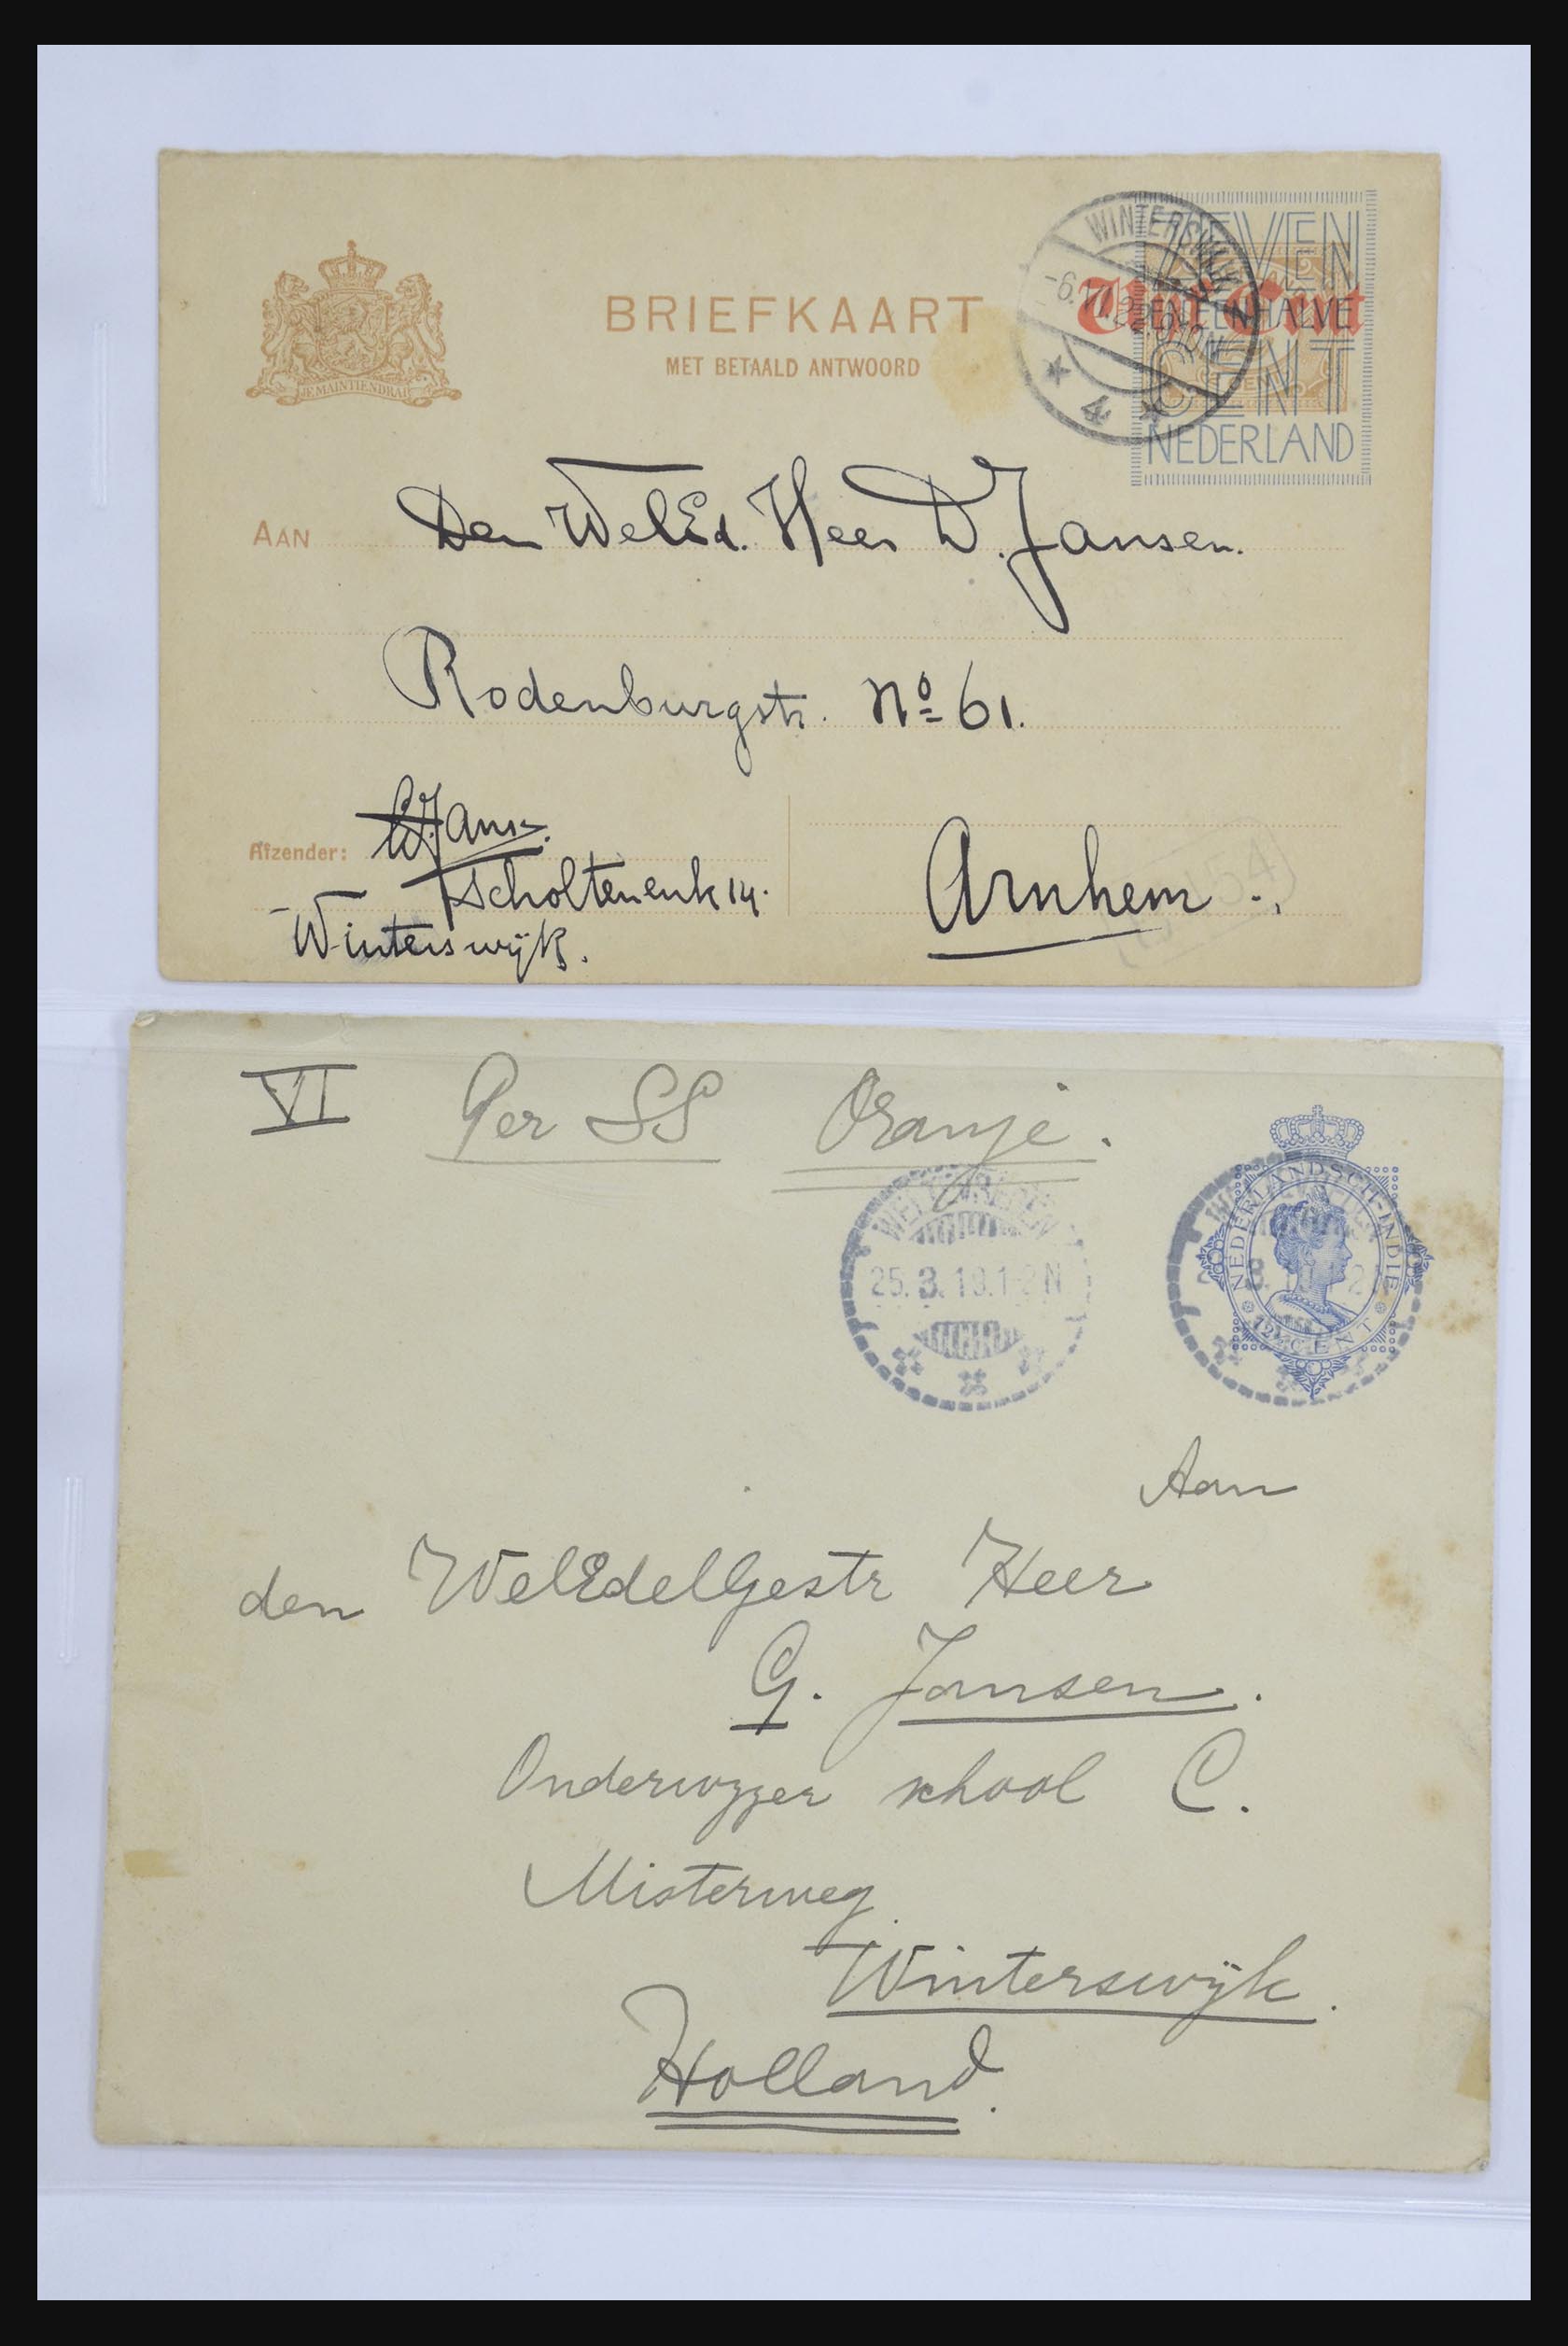 BRIEFKAART
MET BETAALD ANTWOORD
JE MAINTIENDRAI
WINTERSWIJK
4
Vijf Cent
ZEVEN
EN EEN HALVE
CENT
NEDERLAND
AAN Den WelEd. Heer D. Jansen.
Rodenburgstr. No 61.
Afzender:
Scholtenenk 14.
Winterswijk.
Arnhem
VI Per SS Oranje.
WELTEVREDEN
25.3.19.1-2N
NEDERLANDSCH-INDIE
12½ CENT
Aan
den WelEdelGestr Heer
G. Jansen.
Onderwijzer school C.
Misterweg.
Winterswijk.
Holland.